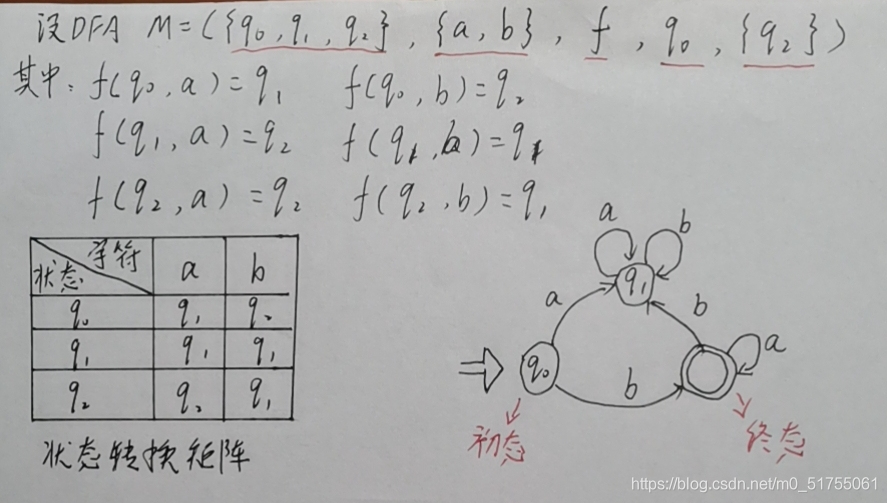 设DFA M=({q₀,q₁,q₂},{a,b},f,q₀,{q₂})
其中:f(q₀,a)=q₁ f(q₀,b)=q₂
f(q₁,a)=q₂ f(q₁,b)=q₁
f(q₂,a)=q₂ f(q₂,b)=q₁
字符
状态 a b
q₀ q₁ q₂
q₁ q₁ q₁
q₂ q₂ q₁
状态转换矩阵
a b
q₁
a b
a
q₀
b
初态 终态
https://blog.csdn.net/m0_51755061